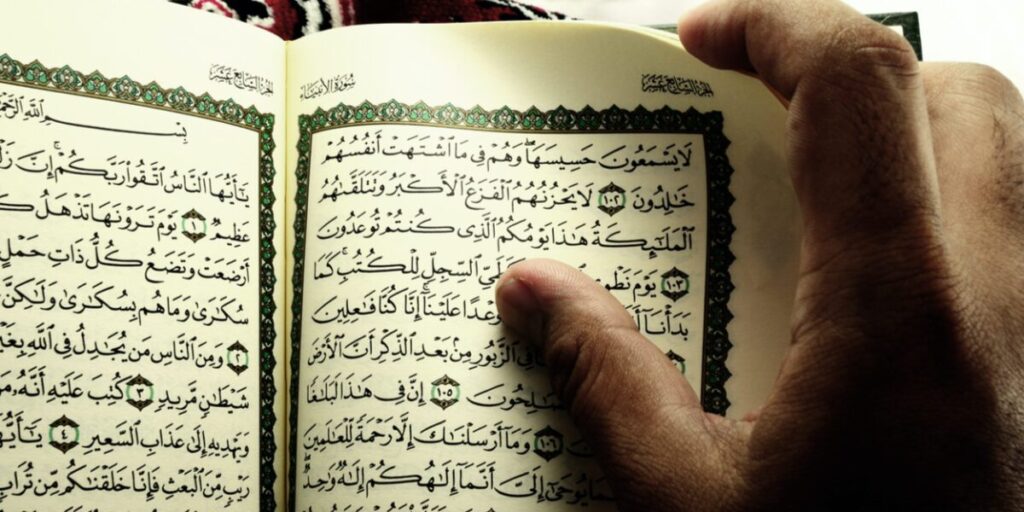 الجزء السابع عشر
سورة الأنبياء
لَا يَسْمَعُونَ حَسِيسَهَا ۖ وَهُمْ فِي مَا ٱشْتَهَتْ أَنفُسُهُمْ
خَٰلِدُونَ ١٠٢ لَا يَحْزُنُهُمُ ٱلْفَزَعُ ٱلْأَكْبَرُ وَتَتَلَقَّىٰهُمُ
ٱلْمَلَٰٓئِكَةُ هَٰذَا يَوْمُكُمُ ٱلَّذِي كُنتُمْ تُوعَدُونَ
١٠٣ يَوْمَ ٱلسِّجِلِّ لِلْكُتُبِ ۚ كَمَا
بَدَأْنَآ عَلَيْنَآ ۚ إِنَّا كُنَّا فَٰعِلِينَ
فِي ٱلزَّبُورِ مِنۢ بَعْدِ ٱلذِّكْرِ أَنَّ ٱلْأَرْضَ
١٠٥ إِنَّ فِي هَٰذَا لَبَلَٰغًا
١٠٦ وَمَآ أَرْسَلْنَٰكَ إِلَّا رَحْمَةً لِّلْعَٰلَمِينَ
يُوحَىٰٓ إِلَيَّ أَنَّمَآ إِلَٰهُكُمْ إِلَٰهٌ وَٰحِدٌ
الجزء السابع عشر
بِسْمِ ٱللَّهِ
يَٰٓأَيُّهَا ٱلنَّاسُ ٱتَّقُوا۟ رَبَّكُمْ ۚ إِنَّ
عَظِيمٌ ١ يَوْمَ تَرَوْنَهَا تَذْهَلُ
أَرْضَعَتْ وَتَضَعُ كُلُّ ذَاتِ حَمْلٍ
سُكَٰرَىٰ وَمَا هُم بِسُكَٰرَىٰ وَلَٰكِنَّ
٢ وَمِنَ ٱلنَّاسِ مَن يُجَٰدِلُ فِي ٱللَّهِ
شَيْطَٰنٍ مَّرِيدٍ ٣ كُتِبَ عَلَيْهِ أَنَّهُۥ
وَيَهْدِيهِ إِلَىٰ عَذَابِ ٱلسَّعِيرِ ٤
رَيْبٍ مِّنَ ٱلْبَعْثِ فَإِنَّا خَلَقْنَٰكُم مِّن تُرَابٍ